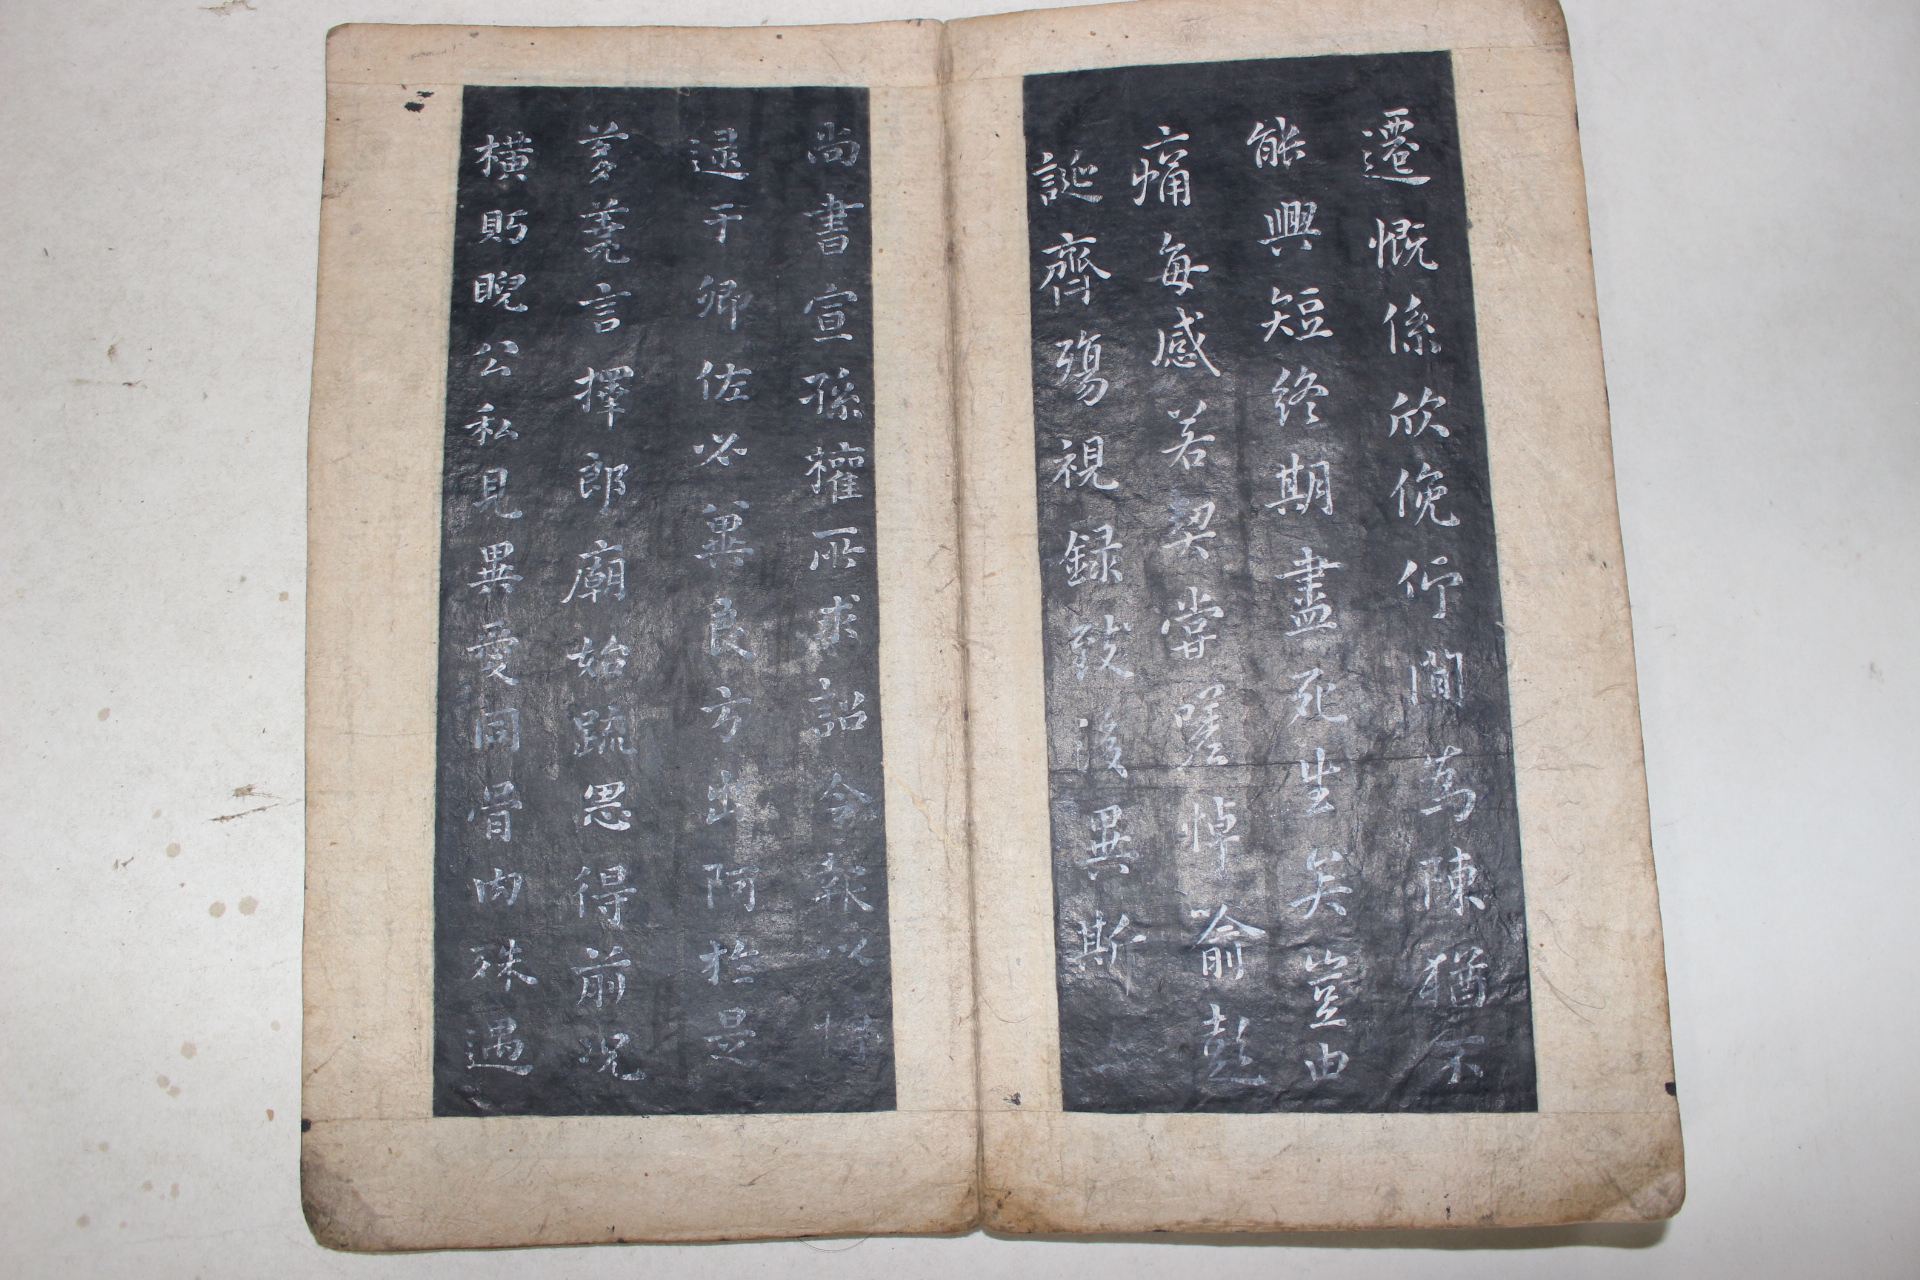 遷慨係欣俛仰間為陳猶不
能興短終期盡死生矣豈由
痛每感若契嘗嗟悼喻彭
誕齊殤視録致後異斯
尚書宣孫權所求詔令報以博
逮于卿佐必冀良方出阿於是
芻蕘言擇郎廟始疏恩得前況
橫眄睨公私見異愛同骨肉殊遇